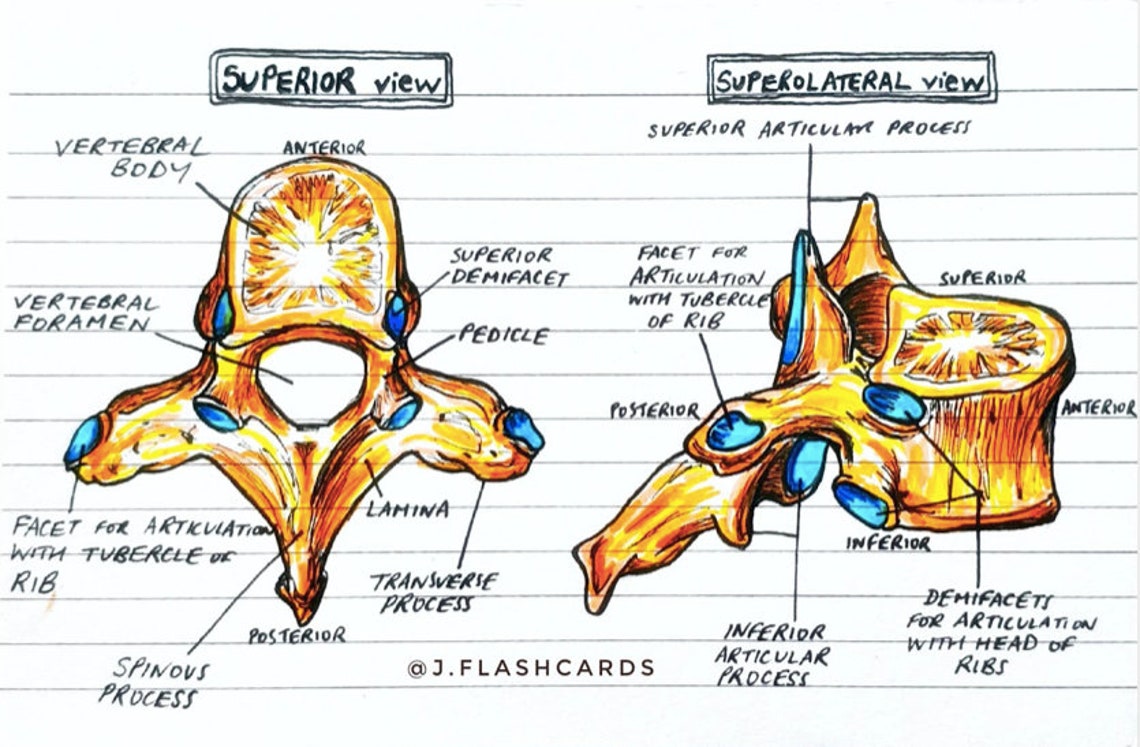 SUPERIOR view
SUPEROLATERAL view
SUPERIOR ARTICULAR PROCESS
VERTEBRAL
BODY
ANTERIOR
SUPERIOR
DEMIFACET
VERTEBRAL
FORAMEN
PEDICLE
FACET FOR ARTICULATION
WITH TUBERCLE OF
RIB
LAMINA
TRANSVERSE
PROCESS
POSTERIOR
SPINOUS
PROCESS
FACET FOR
ARTICULATION
WITH TUBERCLE
OF RIB
SUPERIOR
POSTERIOR
ANTERIOR
INFERIOR
INFERIOR
ARTICULAR
PROCESS
DEMIFACETS
FOR ARTICULATION
WITH HEAD OF
RIBS
@J.FLASHCARDS